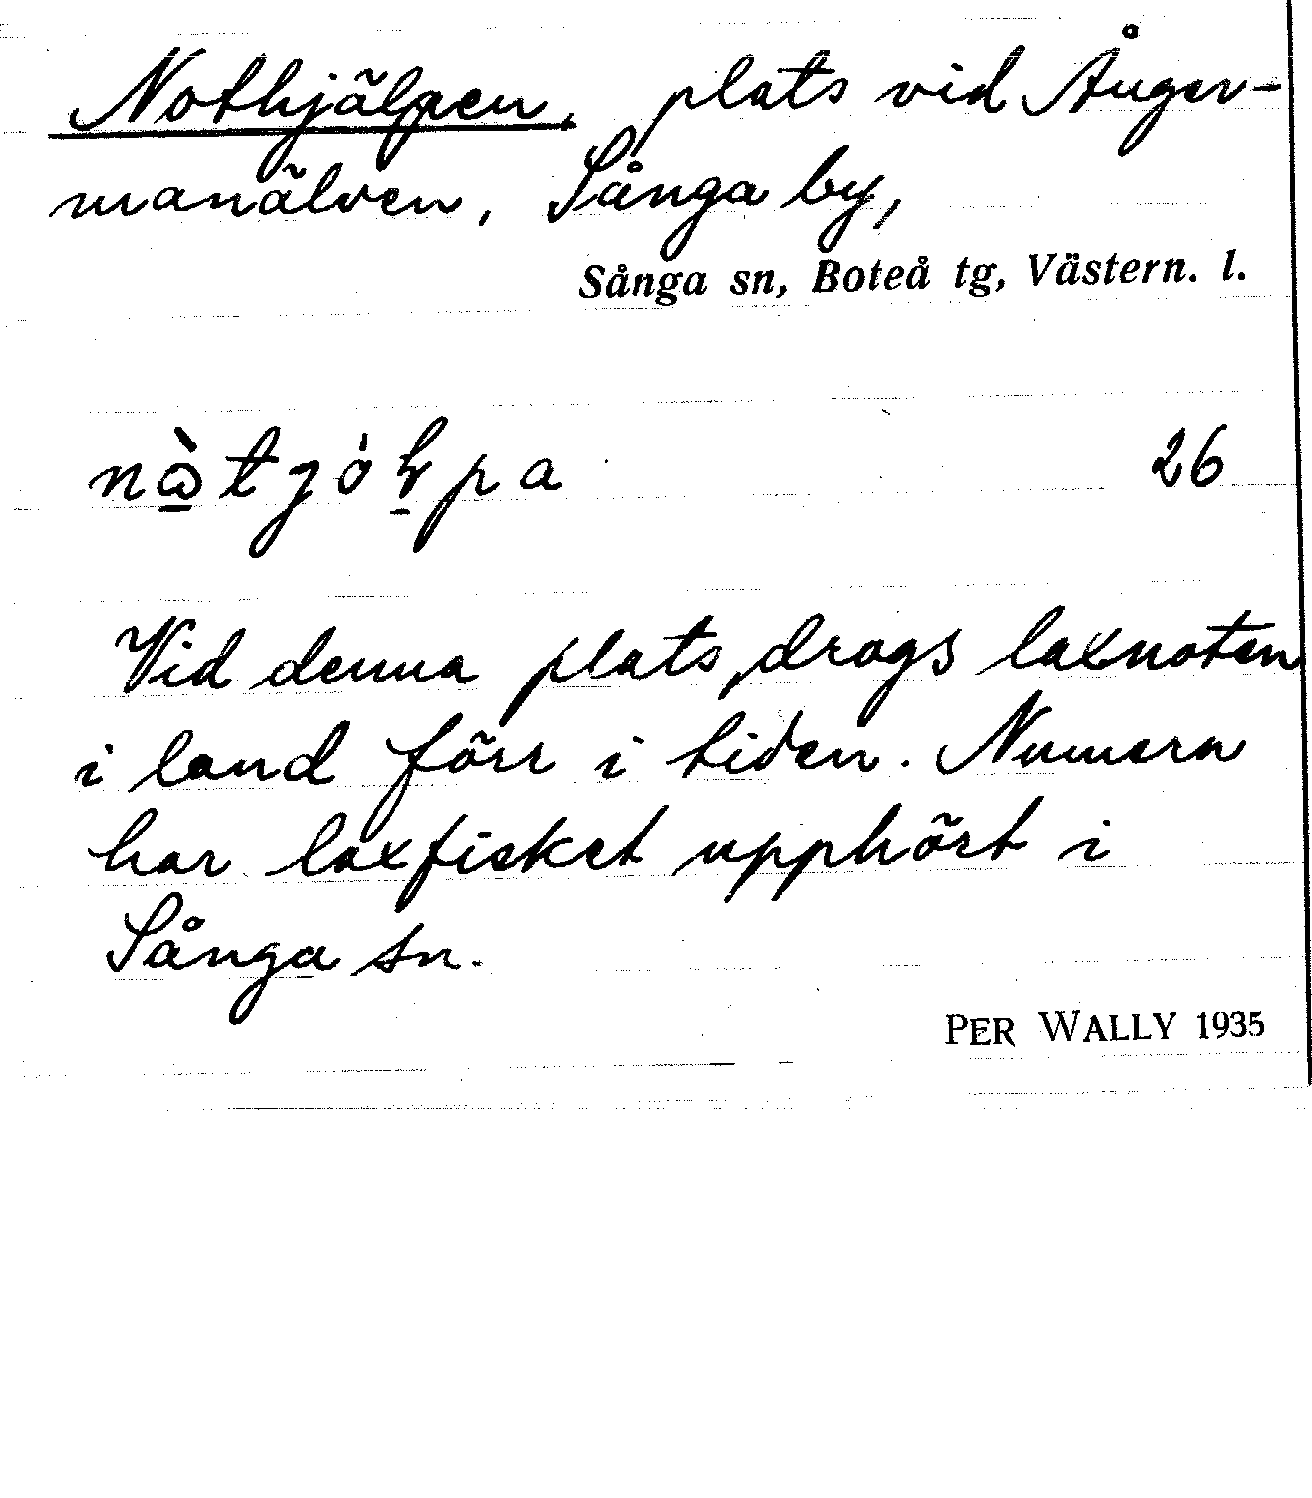 Nothjälpen, plats vid Ånger-
manälven, Sånga by,
Sånga sn, Boteå tg, Västern. l.
26
Vid denna plats drogs laxnoten
i land förr i tiden. Numera
har laxfisket upphört i
Sånga sn.
PER WALLY 1935